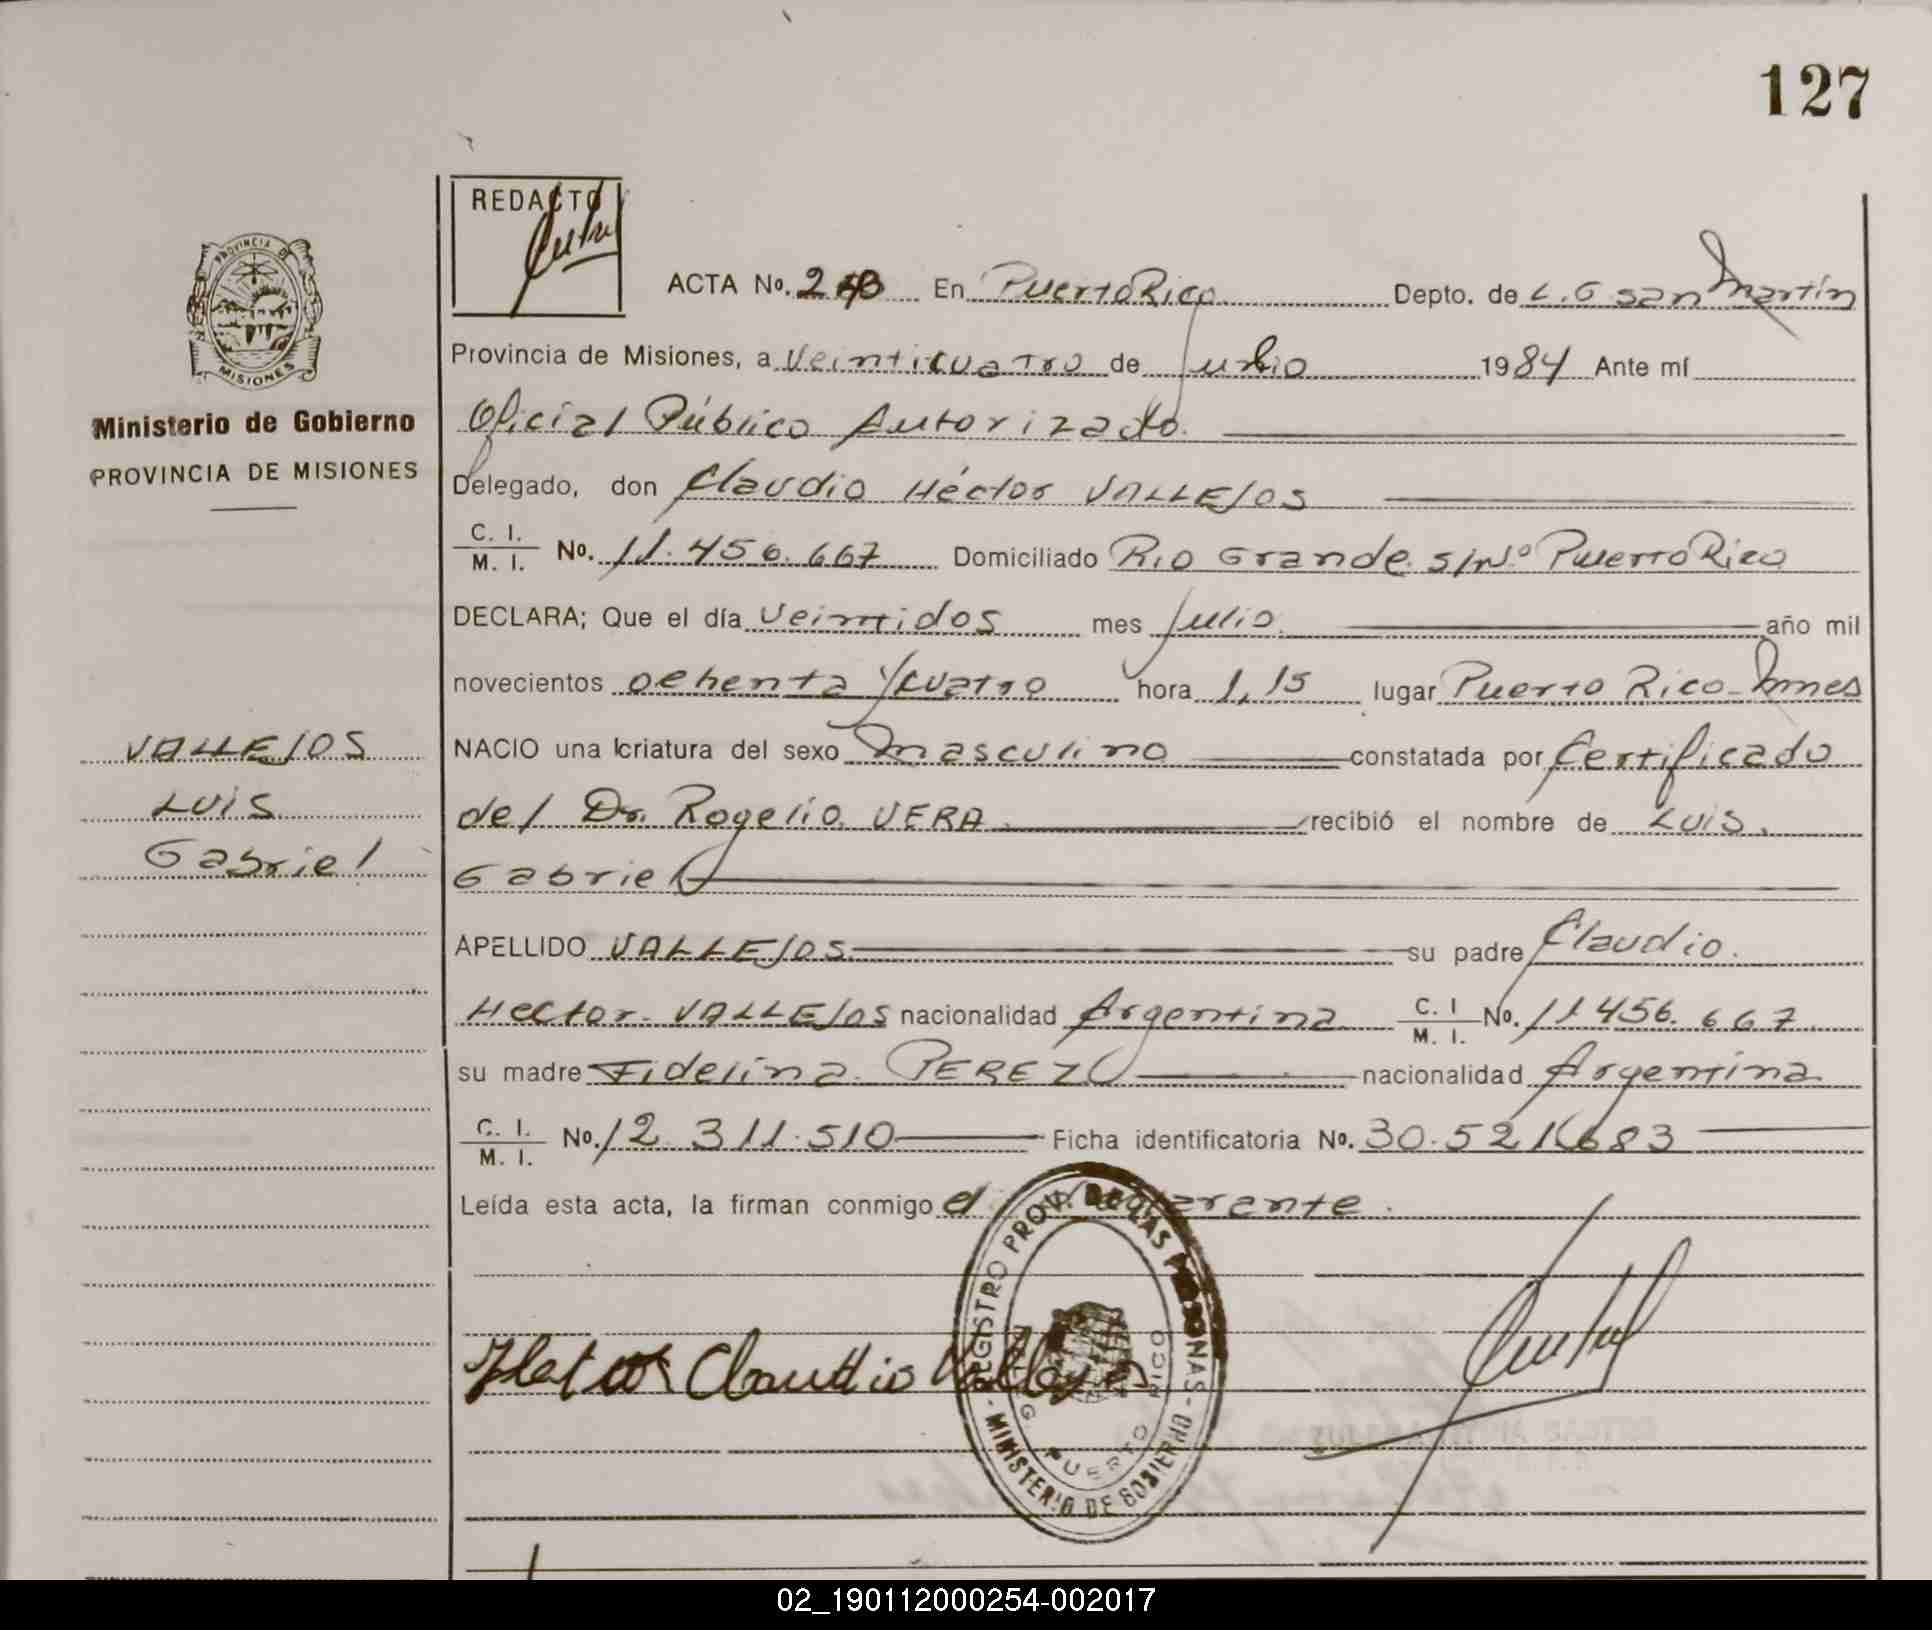 127
REDACTO
ACTA No. En Puerto Rico Depto. de L. G San Martín
Provincia de Misiones, a Veinticuatro de Julio 1984 Ante mí
Oficial Público Autorizado.
Delegado, don Claudio Héctor VALLEJOS
C. I.
M. I. No. 11.456.667 Domiciliado Rio Grande S/Nº Puerto Rico
DECLARA; Que el día Veintidos mes Julio año mil
novecientos ochenta y cuatro hora 1,15 lugar Puerto Rico - Mnes
NACIO una criatura del sexo masculino constatada por Certificado
del Dr. Rogelio VERA recibió el nombre de Luis
Gabriel
APELLIDO VALLEJOS su padre Claudio
Hector VALLEJOS nacionalidad Argentina C. I. M. I. No. 11.456.667
su madre Fidelina PEREZ nacionalidad Argentina
C. I.
M. I. No. 12.311.510 Ficha identificatoria No. 30.521.683
Leída esta acta, la firman conmigo el
PROVINCIA DE
MISIONES
Ministerio de Gobierno
PROVINCIA DE MISIONES
VALLEJOS
LUIS
Gabriel
REGISTRO PROV. DE LAS PERSONAS - MINISTERIO DE GOBIERNO -
PUERTO RICO
Claudio
02_190112000254-002017